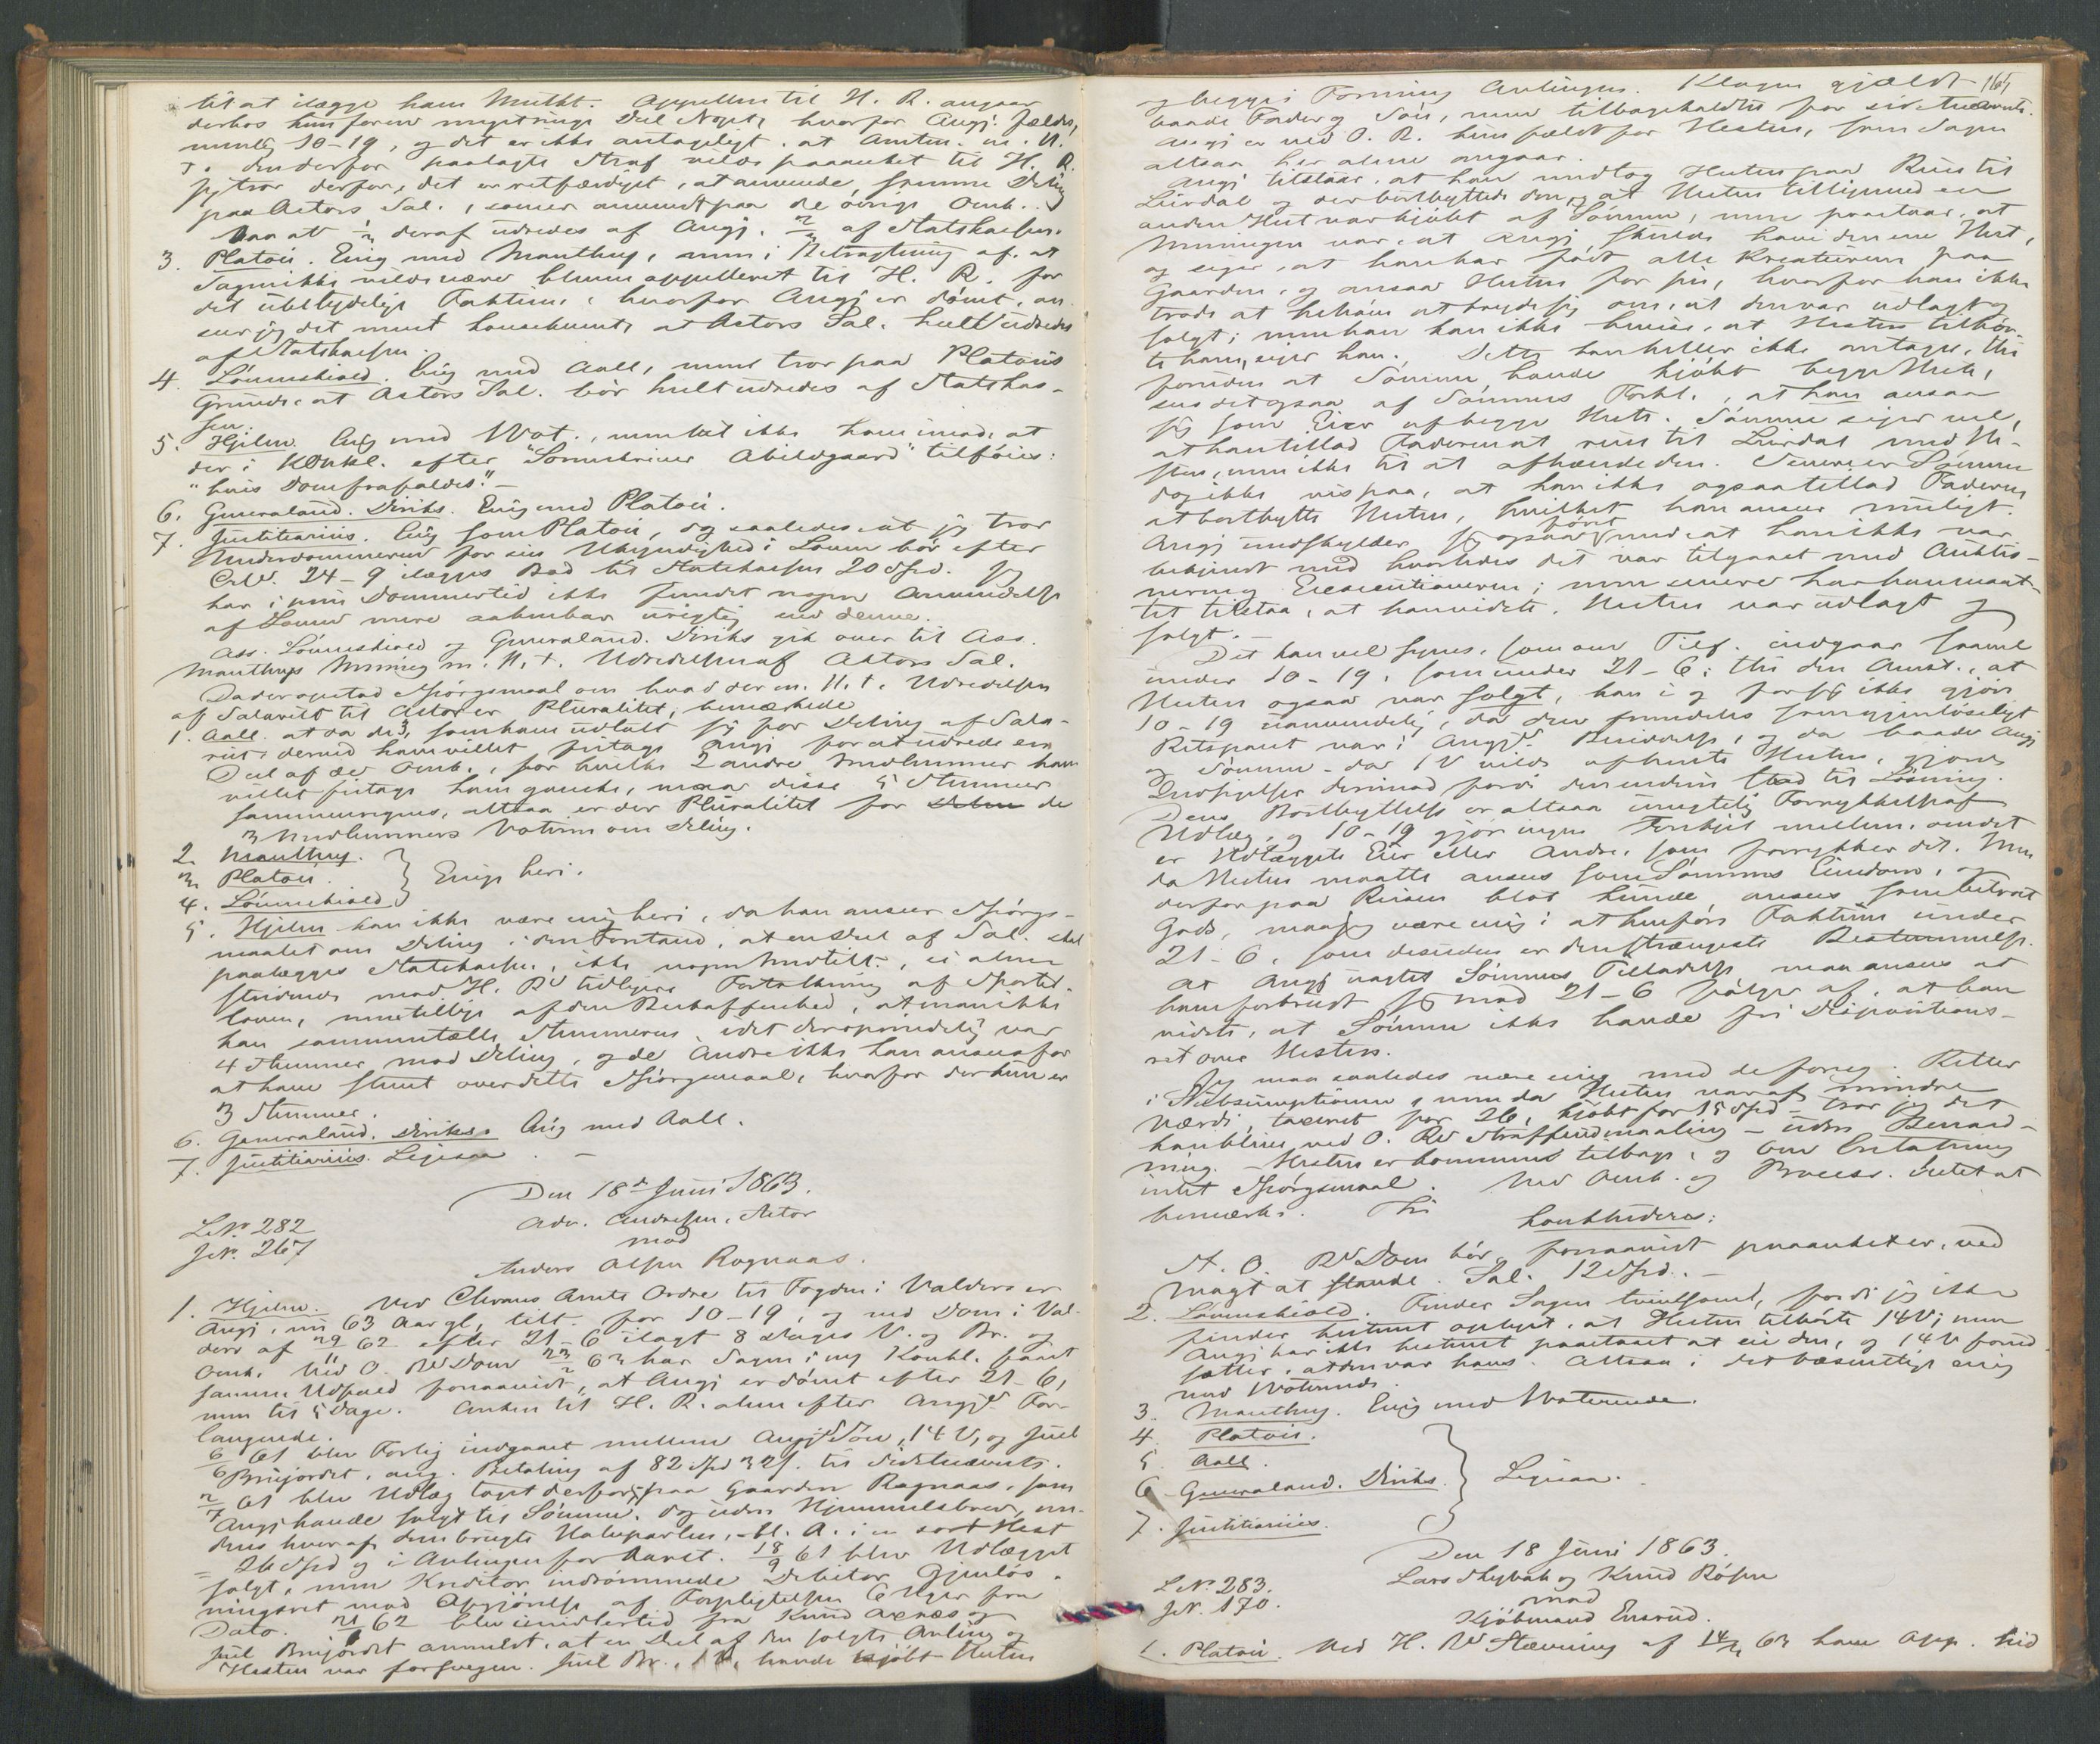 til at ilægge ham Mulkt. Appellen til H. R. angaar
derhos kun foren Deel Nogt, hvorfor Angj. fældes,
nemlig 10-19, og det er ikke antageligt, at Amtm. m. H.
t. den derfor paalagte Straf vilde paaanket til H. R.
Jeg tror derfor, det er retfærdigst, at anvende samme Deling
paa Actors Sal., som er anvendt paa de øvrige Omk.
saa at ½ deraf udredes af Angj. ½ af Statskassen.
3. Platou. Enig med Manthey, men i Betragtning af, at
Sagen ikke vilde være bleven appelleret til H. R. for
det ubetydelige Faktum, hvorfor Angj. er dømt, an-
seer jeg det mest konsekvent, at Actors Sal. helt udredes
af Statskassen.
4. Løvenskiold. Enig med Aall, men tror paa Platous
Grunde, at Actors Sal. bør helt udredes af Statskas-
sen.
5. Hjelm. Enig med Vot., men lidt ikke have imod, at
der i Konkl. efter "Sorenskriver Abildgaard" tilføies:
"hvis Dom frafaldes." -
6. Generalaud. Diriks. Enig med Platou.
7. Justitiarius. Enig som Platou, og saaledes at jeg tror
Underdommeren for sin Ukyndighed i Loven bør efter
Crl. 24-9 ilægges Bod til Statskassen 20 Spd. Jeg
har i min Dommertid ikke fundet nogen Anvendelse
af Loven mere aabenbar urigtig end denne.
Ass. Løvenskiold og Generalaud. Diriks gik over til Ass.
Mantheys Mening m. H. t. Udredelsen af Aktors Sal.
Da der opstod Spørgsmaal om hvad der m. H. t. Udredelsen
af Salariet til Actor er Pluralitet, bemærkede
1. Aall. at da de 3, som have udtalt sig for Deling af Sala-
riet, derved have villet fritage Angj. for at udrede en
Deel af de Omk., for hvilke 2 andre Medlemmer have
villet fritage ham ganske, maa disse 5 Stemmer
sammenregnes, altsaa er der Pluralitet for de
3 Medlemmers Votum om Deling.
2. Manthey.
3. Platou. } Enige heri.
4. Løvenskiold
5. Hjelm kan ikke være enig heri, da han anseer Spørgs-
maalet om Deling i den Forstand, at en Deel af Sal. skal
paalægges Statskassen, ikke nogen Medtilt., ei alene
stridende mod H. Rs tidligere Fortolkning af Sportel-
loven, men tillige af den Beskaffenhed, at man ikke
kan sammentælle Stemmerne, idet der øiensynelig var
4 Stemmer mod Deling, og de Andre ikke kan ansees for
at have stemt over dette Spørgsmaal, hvorfor der kun er
3 Stemmer.
6. Generalaud. Diriks. Enig med Aall.
7. Justitiarius. Ligesaa. -
Den 18de Juni 1863.
L.No. 282 Adv. Andresen, Actor
J.N. 267 mod
Anders Olsen Rognaas.
1. Hjelm. Ved Christians Amts Ordre til Fogden i Valders er
Angj., nu 63 Aar gl., tilt. for 10-19, og ved Dom i Val-
ders af 29/11 62 efter 21-6 ilagt 8 Dages V. og Br. og
Omk. Ved O. Rs Dom 23/2 63 har Sagen i ny Konkl. faaet
samme Udfald forsaavidt, at Angj. er dømt efter 21-6,
men til 5 Dage. Anken til H. R. alene efter Angjs For-
langende.
6/6 61 blev Forlig indgaaet mellem Angjs Søn, 14 V, og Juul
Brujordet, ang. Betaling af 82 Spd 32 s. til Sidstnævnte.
2/7 61 blev Udlæg taget derfor paa Gaarden Rognaas, som
Angj. havde solgt til Sønnen, dog uden Hjemmelsbrev, men
dens hver af den brugte Halvparten, - bl. A. i en sort Hest
= 26 Spd og i Avlingen for Aaret. 18/9 61 blev Udlægget
solgt, men Kreditor indrømmede Debitor Gjenløs-
ningsret mod Opgjørelse af Forpligtelsen 6 Uger fra
Dato. 21/ 62 blev imidlertid fra Knud Axnæs og
Juul Brujordet anmeldt, at en Deel af den solgte Avling og
Hesten var forsvunden. Juul Br., 1 V, havde kjøbt Hesten
165
og begge i Forening Avlingen. Klagen gjældt
baade Fader og Søn, men tilbagekaldtes for Sidstnævnte.
Angj. er ved O. R. kun fældt for Hesten, som Sagen
altsaa her alene angaar.
Angj. tilstaar, at han medtog Hesten paa Reise til
Lærdal og der bortbyttede den, og at Hesten tilligemed en
anden Hest var kjøbt af Sønnen, men paastaar, at
Meningen var, at Angj. skulde have den ene Hest,
og siger, at han har født alle Kreaturene paa
Gaarden, og ansaa Hesten for sin, hvorfor han ikke
trode at behøve at bryde sig om, at den var udlagt og
solgt; men han kan ikke bevise, at Hesten tilhør-
te ham, siger han. Dette kan heller ikke antages, thi
foruden at Sønnen havde kjøbt begge Heste,
sees det ogsaa af Sønnens Forkl., at han ansaa
sig som Eier af begge Heste. Sønnen siger vel,
at han tillod Faderen at reise til Lærdal med He-
sten, men ikke til at afhænde den. Senere er Sønnen
dog ikke vis paa, at han ikke ogsaa tillod Faderen
at bortbytte Hesten, hvilket han anser muligt.
Angj. undskylder sig ogsaa først med at han ikke var
bekjendt med hvorledes det var tilgaaet med Auktio-
nen og Executionen; men senere har han maat-
tet tilstaa, at han vidste, Hesten var udlagt og
solgt. -
Det kan vel synes, som om Tilf. indgaar saavel
under 10-19, som under 21-6; thi den Omst., at
Hesten ogsaa var solgt, kan i og for sig ikke gjøre
10-19 uanvendelig, da den fremdeles som gjenløseligt
Retspant var i Angjs Besiddelse, og da baade Angj.
og Sønnen - da 1 V vilde afhente Hesten, gjorde
Indsigelser derimod fordi den endnu stod til Løsning.
Dens Bortbyttelse er altsaa unegtelig Forrykkelse af
Udlæg, og 10-19 gjør ingen Forskjel mellem, om det
er Udlæggets Eier eller Andre, som forrykker det. Men
da Hesten maatte ansees som Sønnens Eiendom, og
derfor paa Reisen blot kunde ansees som betroet
Gods, maa jeg være enig i at henføre Faktum under
21-6, som desuden er den strængeste Bestemmelse.
At Angj. uagtet Sønnens Tilladelse, maa ansees at
have forbrudt sig mod 21-6 følger af, at han
vidste, at Sønnen ikke havde fri Dispositions-
ret over Hesten.
Jeg maa saaledes være enig med de foreg. Retter
i Subsumptionen, men da Hesten var af mindre
Værdi, taxeret for 26, kjøbt for 15 Spd - tror jeg det
kan blive ved O. Rs Straffeudmaaling - uden Benaad-
ning. - Hesten er kommen tilbage, og om Erstatning
intet Spørgsmaal. Ved Omk. og Process. Intet at
bemærke. Thi
konkluderes:
St. O. Rs Dom bør, forsaavidt paaanket er, ved
Magt at stande. Sal. 12 Spd. -
2. Løvenskiold. Finder Sagen tvivlsom, fordi jeg ikke
finder bestemt oplyst, at Hesten tilhørte 14 V; men
Angj. har ikke bestemt paastaaet at eie den, og 14 V forud-
sætter, at den var hans. Altsaa i det væsentlige enig
med Voterende.
3. Manthey. Enig med Voterende.
4. Platou.
5. Aall.
6 Generalaud. Diriks. } Ligesaa.
7. Justitiarius.
Den 18 Juni 1863.
L.No. 283. Lars Skybak og Knud Røsen
J.N. 170. mod
Kjøbmand Ensrud.
1. Platou. Ved H. Rs Stævning af 14/2 63 have App. hid